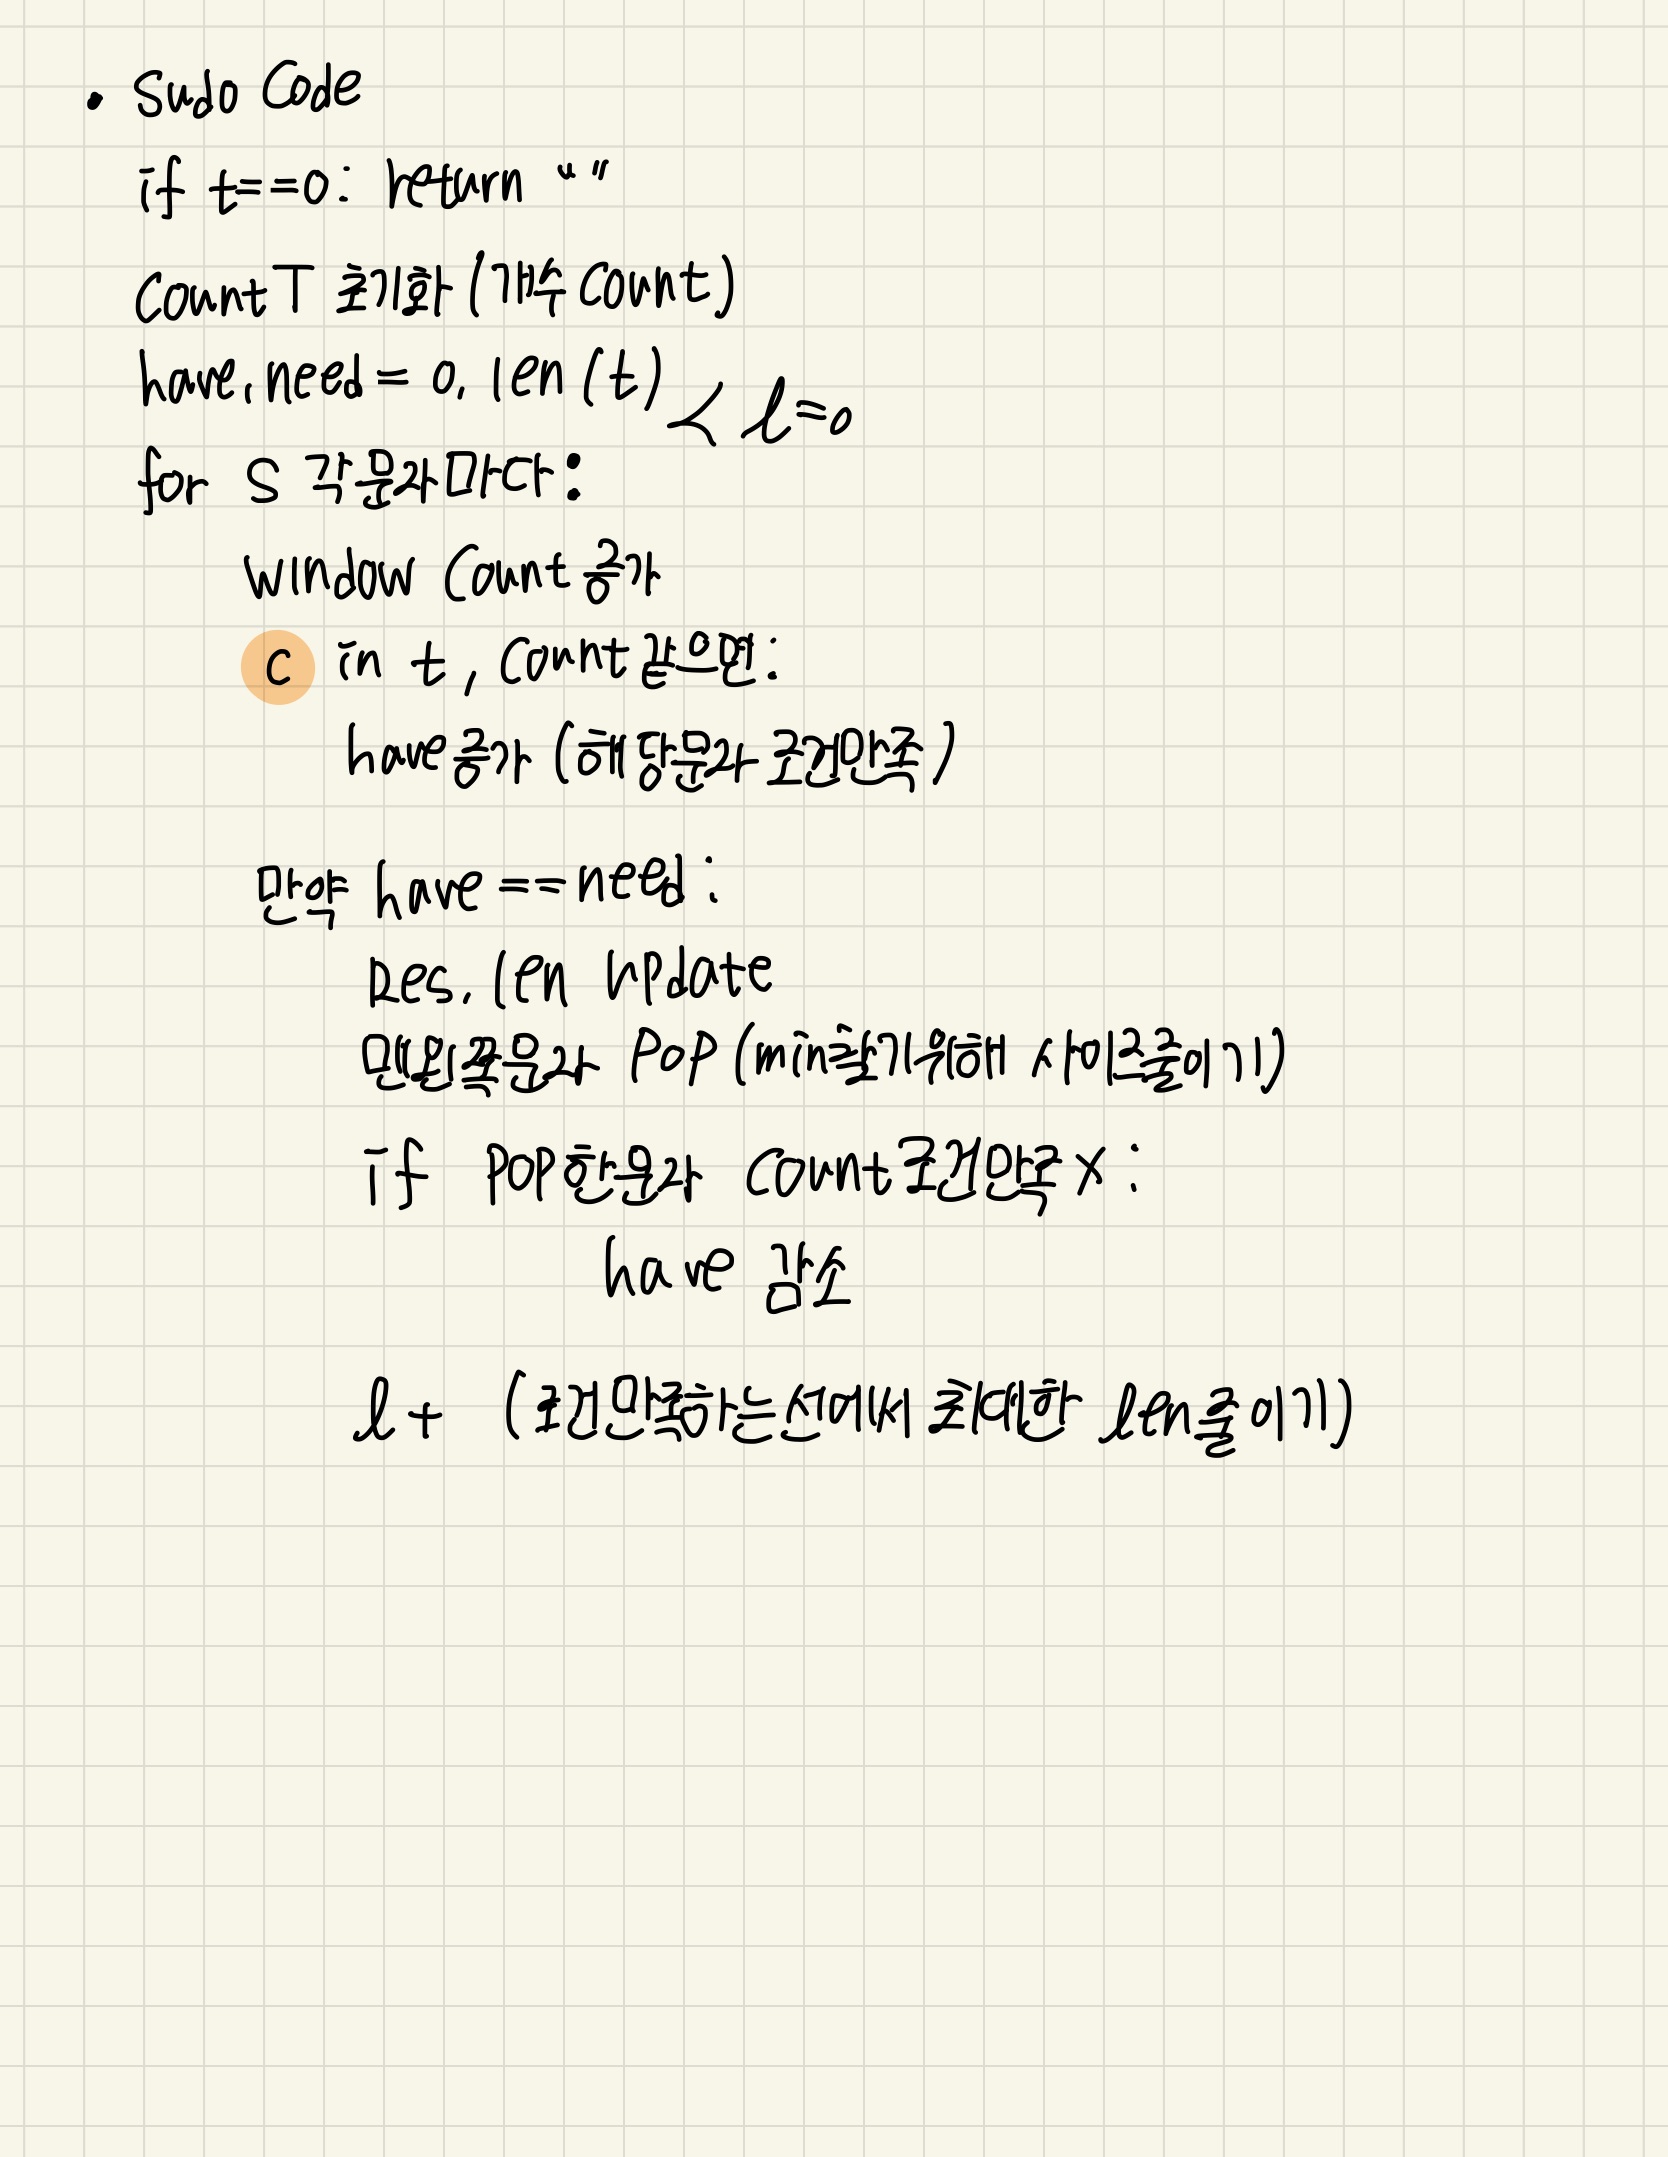 • Sudo Code
if t==0: return “ ”
Count T 초기화 (개수 Count)
have, need = 0, len (t) < l=0
for S 각문자마다:
window Count 증가
c in t, Count 같으면:
have증가 (해당문자 조건만족)
만약 have == need:
Res, len update
맨왼쪽문자 Pop (min찾기위해 사이즈줄이기)
if Pop한문자 Count조건만족 x :
have 감소
l + (조건만족하는선에서 최대한 len줄이기)